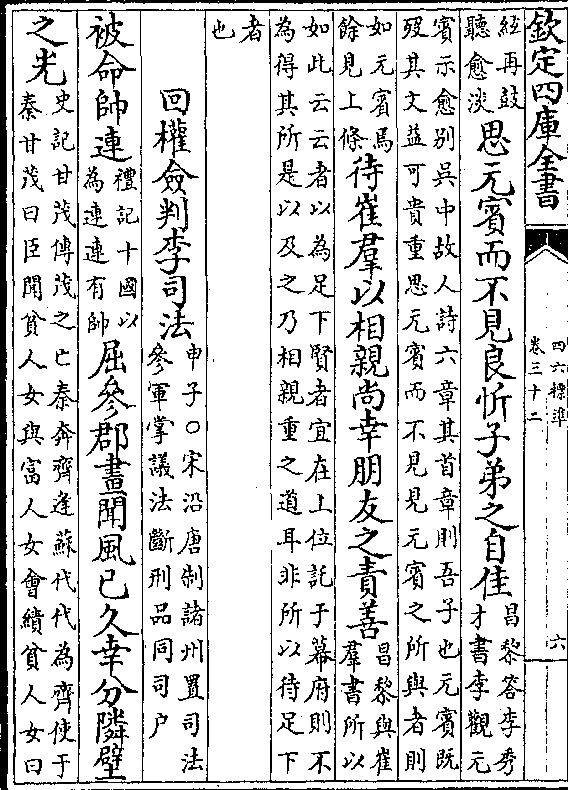 欽定四庫全書
四六標準
卷三十二
六
絃再鼓
聽愈淡
思元賓而不見良忻子弟之自佳
昌黎答李秀
才書李觀元
賓示愈别吳中故人詩六章其首章則吾子也元賓既
殁其文益可貴重思元賓而不見見元賓之所與者則
如元賓焉
餘見上條
待崔羣以相親尚幸朋友之責善
昌黎與崔
羣書所以
如此云云者以為足下賢者宜在上位託于幕府則不
為得其所是以及之乃相親重之道耳非所以待足下
者
也
回權僉判李司法
申子○宋沿唐制諸州置司法
參軍掌議法斷刑品同司户
被命帥連
禮記十國以
為連連有帥
屈參郡畫聞風已久幸分隣壁
之光
史記甘茂傳茂之亡秦奔齊逢蘇代代為齊使于
秦甘茂曰臣聞貧人女與富人女會績貧人女曰